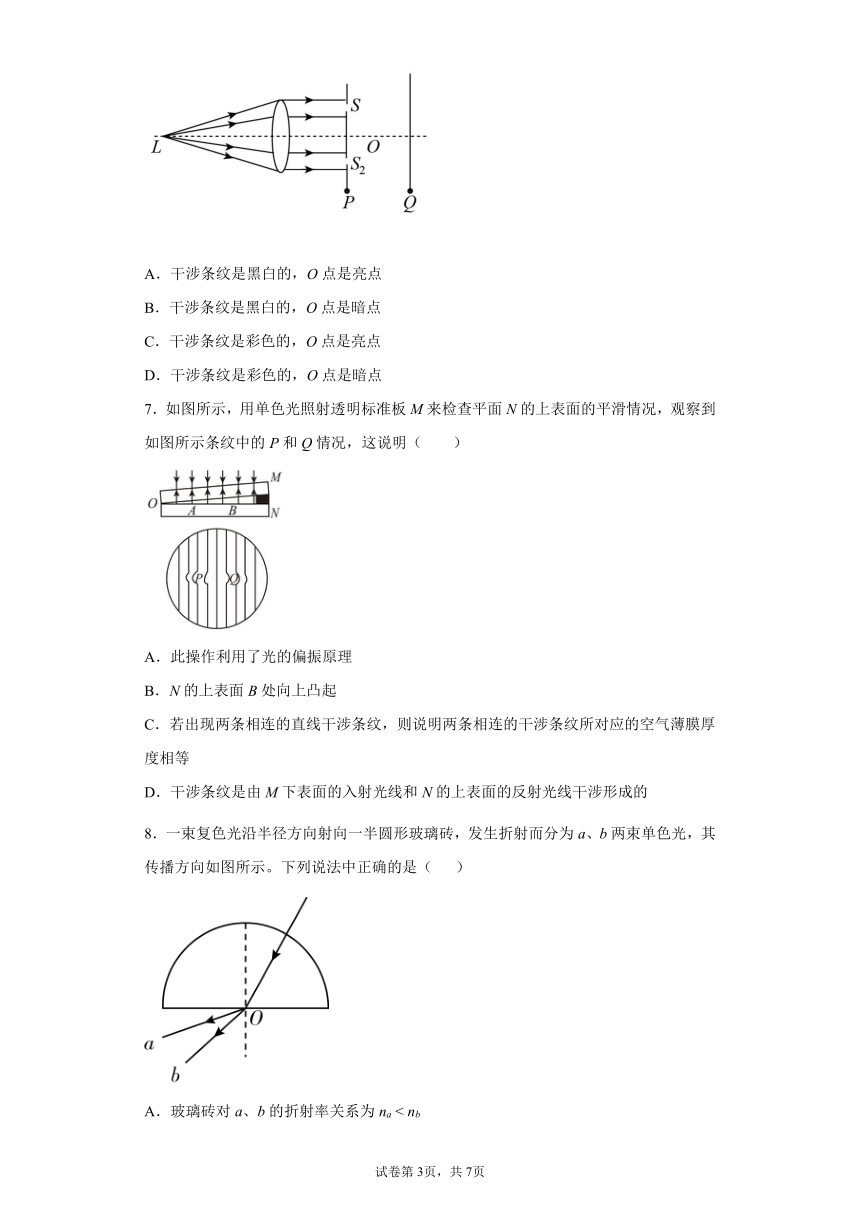 L
S
O
S₂
P
Q
A．干涉条纹是黑白的，O 点是亮点
B．干涉条纹是黑白的，O 点是暗点
C．干涉条纹是彩色的，O 点是亮点
D．干涉条纹是彩色的，O 点是暗点
7．如图所示，用单色光照射透明标准板 M 来检查平面 N 的上表面的平滑情况，观察到
如图所示条纹中的 P 和 Q 情况，这说明（　　）
M
O
A
B
N
P
Q
A．此操作利用了光的偏振原理
B．N 的上表面 B 处向上凸起
C．若出现两条相连的直线干涉条纹，则说明两条相连的干涉条纹所对应的空气薄膜厚
度相等
D．干涉条纹是由 M 下表面的入射光线和 N 的上表面的反射光线干涉形成的
8．一束复色光沿半径方向射向一半圆形玻璃砖，发生折射而分为 a、b 两束单色光，其
传播方向如图所示。下列说法中正确的是（　　）
O
a
b
A．玻璃砖对 a、b 的折射率关系为 nₐ < n_b
试卷第 3页，共 7页